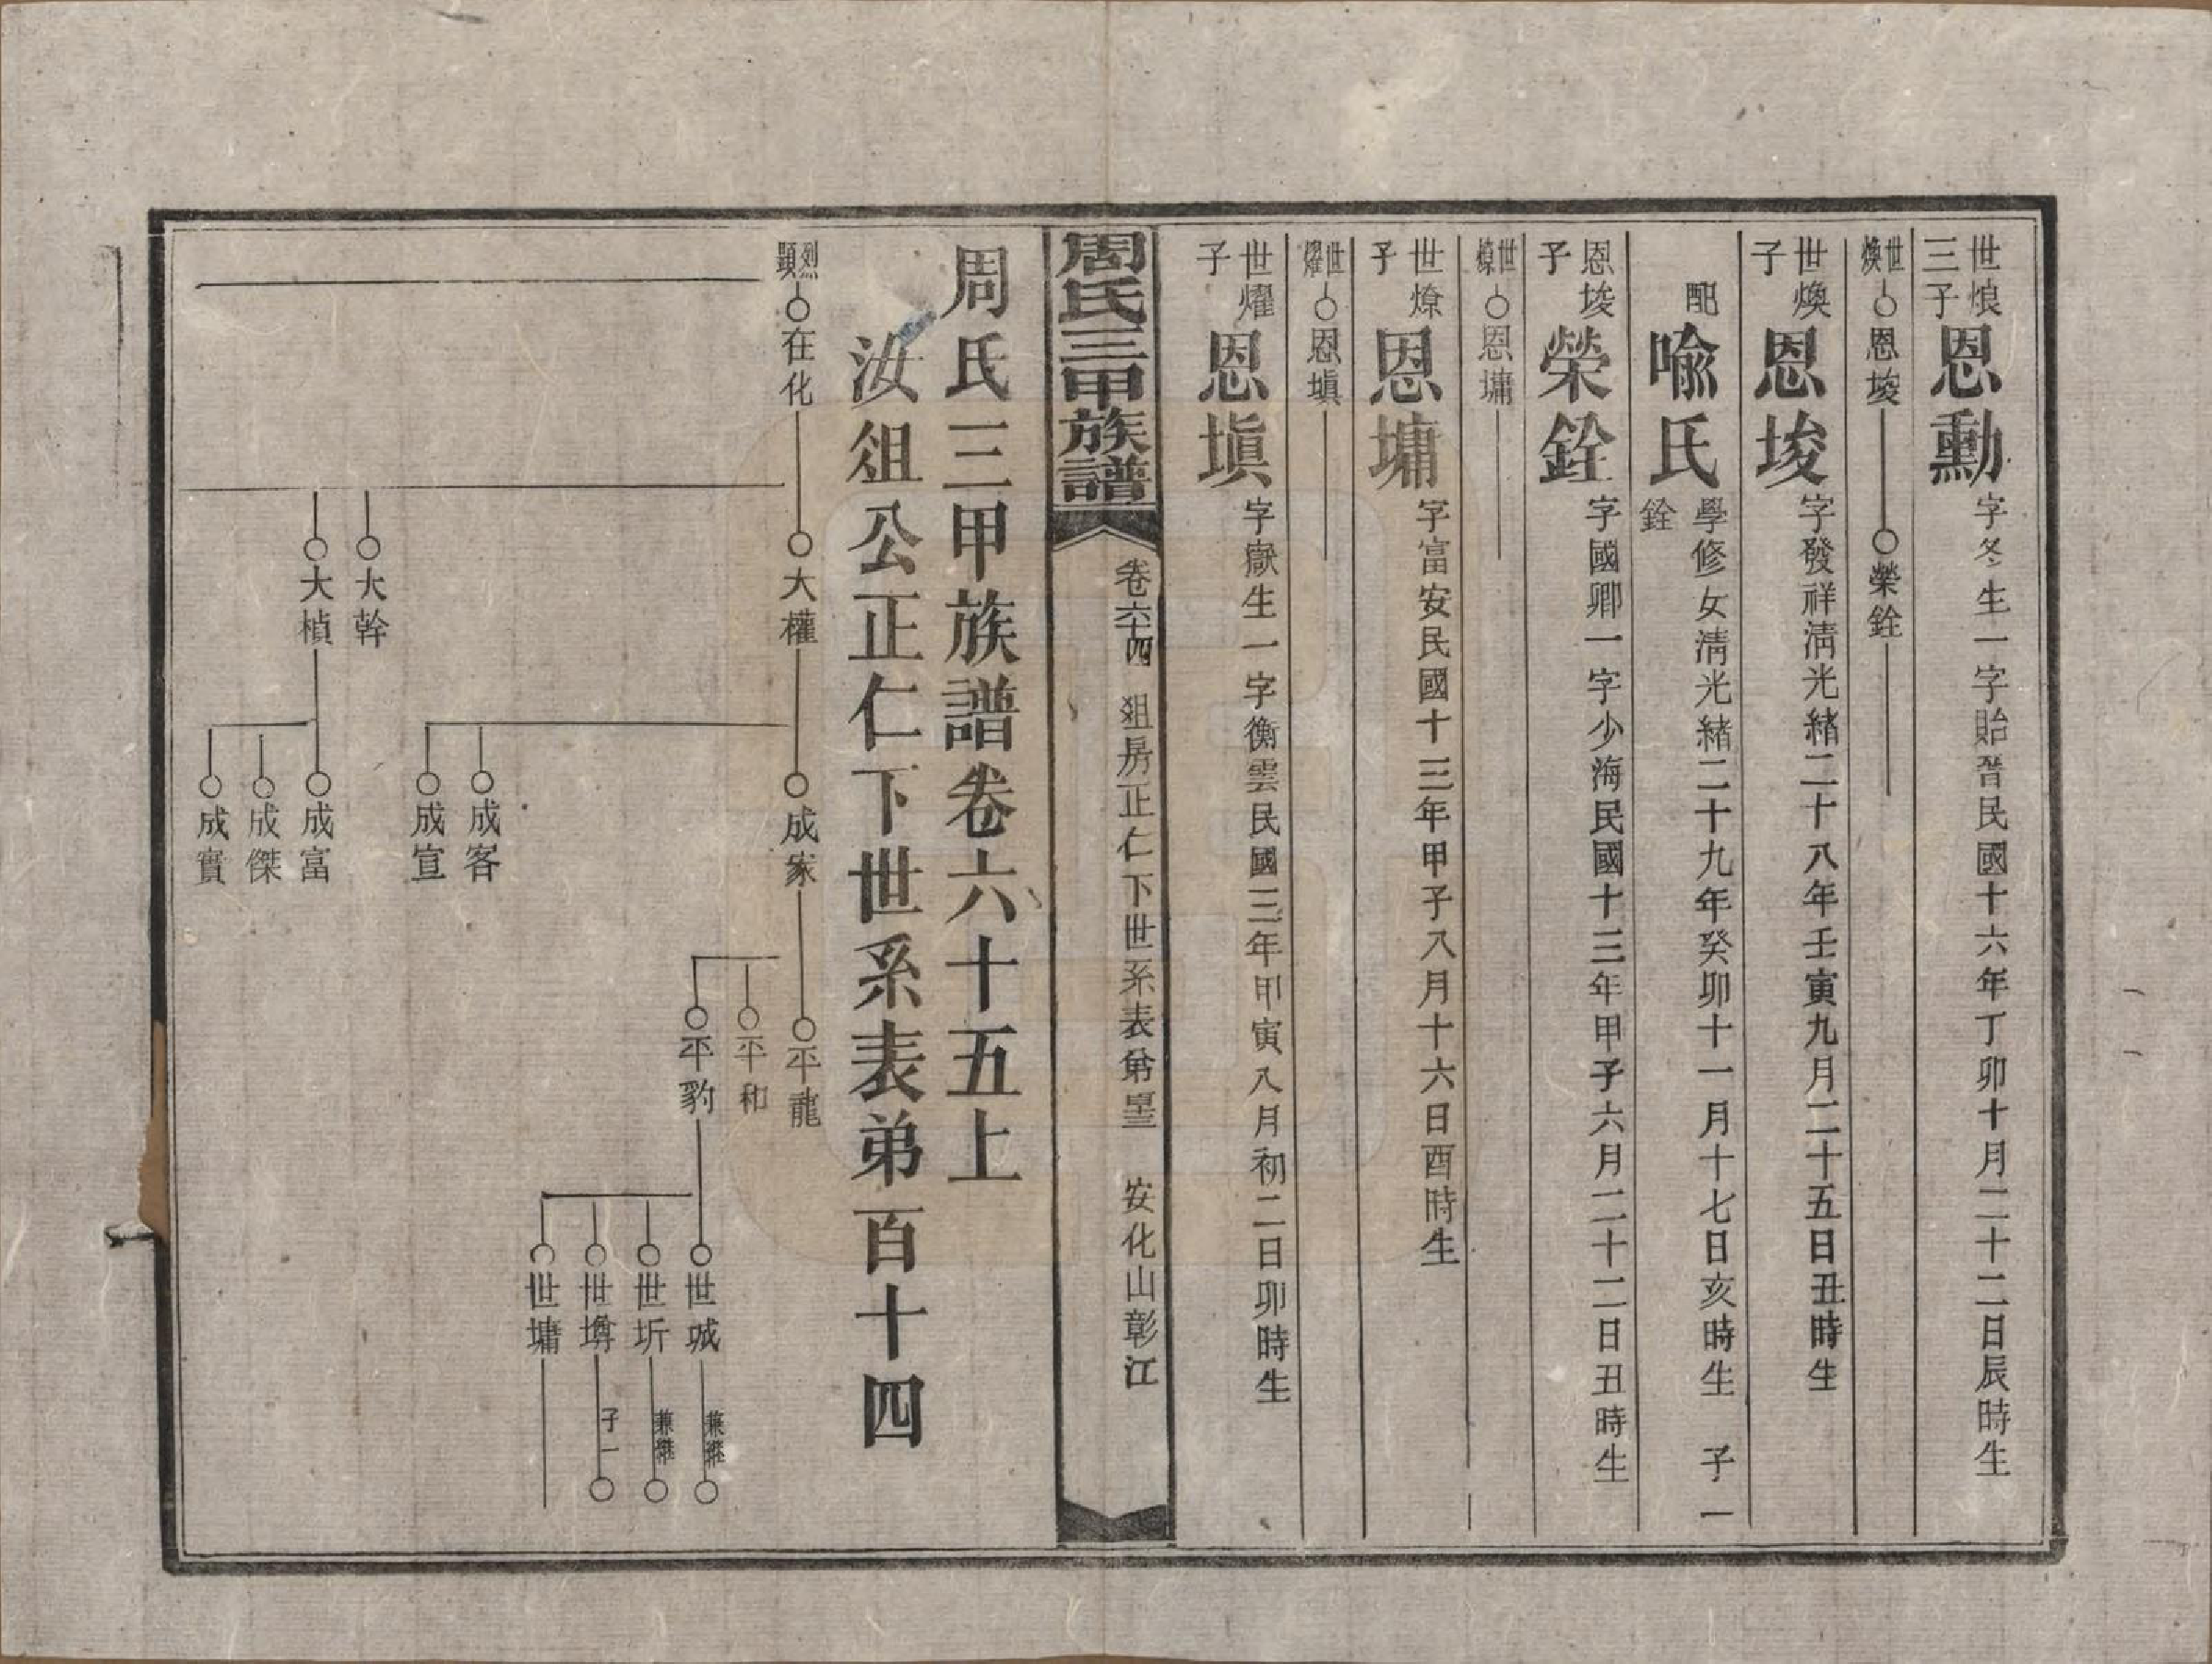 世烺三子 恩勳 字冬生一字貽晉民國十六年丁卯十月二十二日辰時生
世煥 恩埈 榮銓
世煥子 恩埈 字發祥淸光緖二十八年壬寅九月二十五日丑時生
配 喩氏 學修女淸光緖二十九年癸卯十一月十七日亥時生 子一 銓
恩埈子 榮銓 字國卿一字少海民國十三年甲子六月二十二日丑時生
世燎 恩墉
世燎子 恩墉 字富安民國十三年甲子八月十六日酉時生
世燿 恩塡
世燿子 恩塡 字嶽生一字衡雲民國三年甲寅八月初二日卯時生
周氏三甲族譜 卷六十四 俎房正仁下世系表第 安化山彰江
周氏三甲族譜卷六十五上
汝俎公正仁下世系表弟百十四
烈顯 在化 大權 成家 平龍
平和
平豹 世城 兼繼
世圻 兼繼
世墫 子一
世墉
成客
成宣
大幹
大楨 成富
成傑
成實